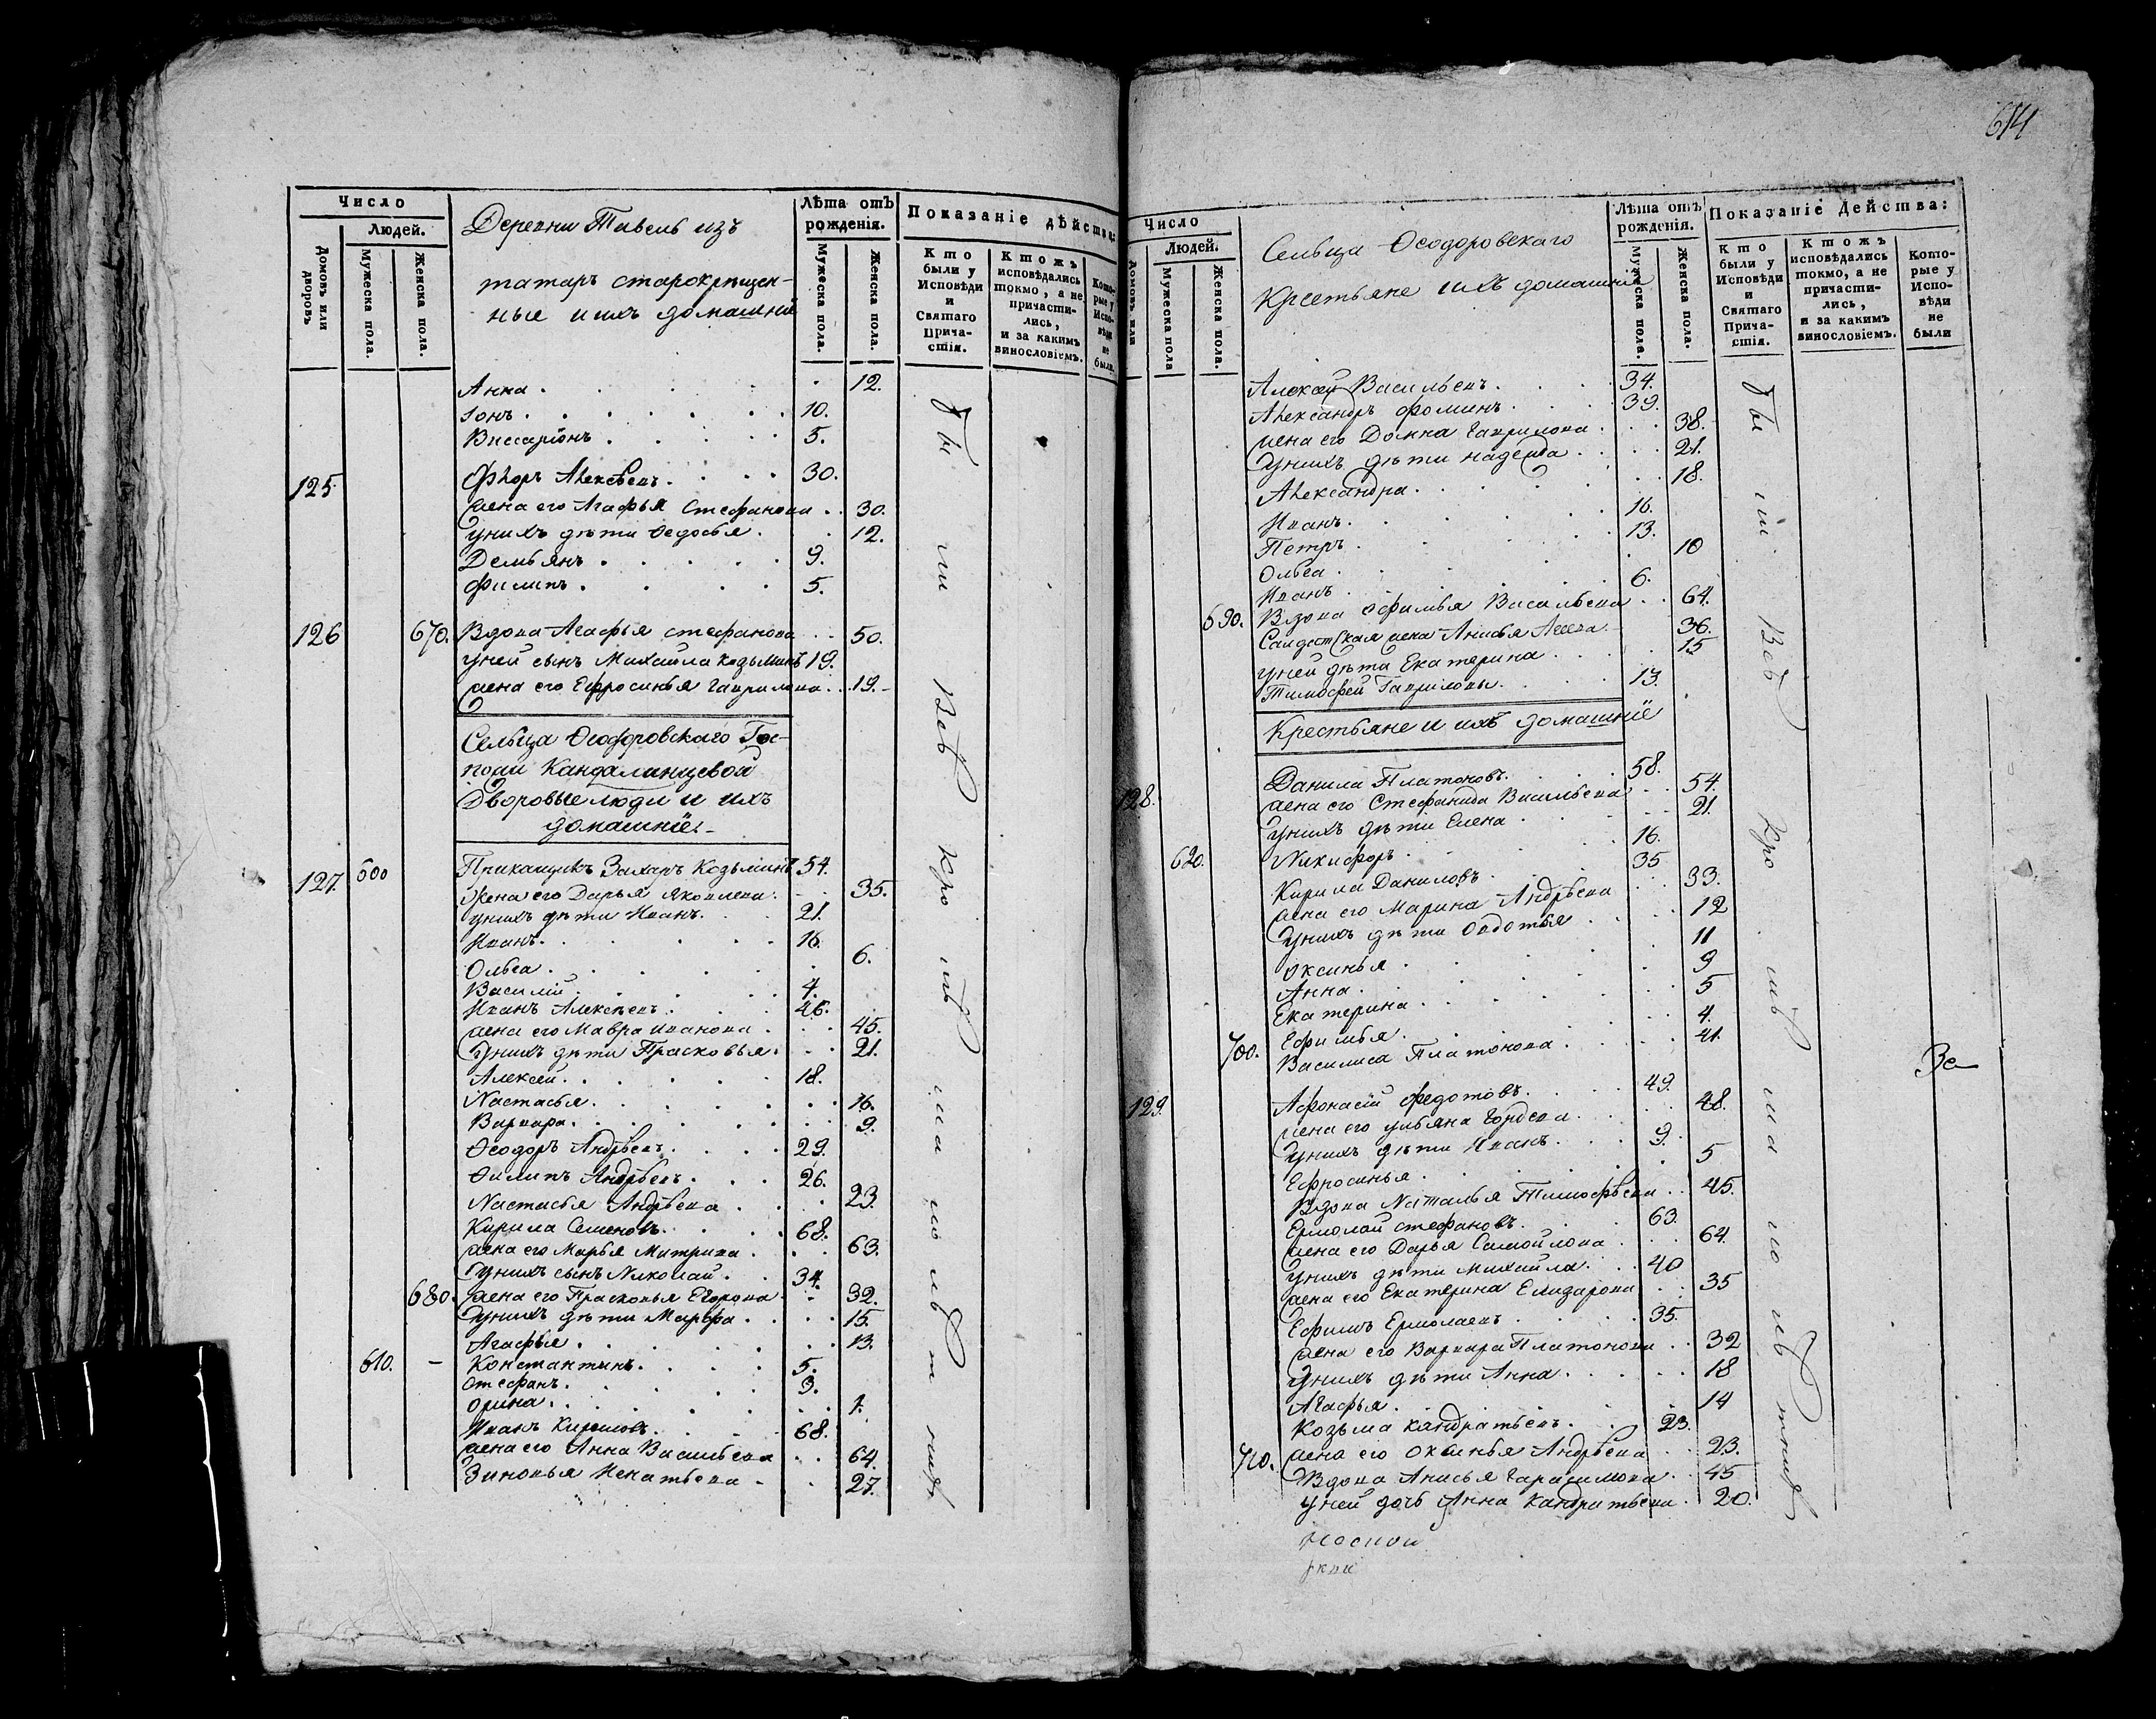 Число
Людей.
Домовъ или дворовъ.
Мужеска пола.
Женска пола.
Деревни Тавель изъ
татаръ старокрещен-
ные и ихъ домашніе
Лѣта отъ рожденія.
Мужеска пола.
Женска пола.
Показаніе дѣйства:
Кто были у Исповѣди и Святаго Причастія.
Ктожъ исповѣдались токмо, а не причастились, и за какимъ винословіемъ.
Которые у Исповѣди не были.
Анна 12.
Іонъ 10.
Виссаріонъ 5.
125 Ѳедоръ Алексѣевъ 30.
жена его Агафья Стефанова 30.
у нихъ дѣти Ѳедосья 12.
Демьянъ 9.
Филипъ 5.
126 670. Вдова Агафья Стефанова 50.
у ней сынъ Михайла Козьминъ 19.
жена его Ефросинья Гаврилова 19.
Сельца Ѳеодоровскаго Гос-
пожи Кандалинцевой
Дворовые люди и ихъ
домашніе
127. 600 Прикащикъ Захаръ Козьминъ 54.
Жена его Дарья Яковлева 35.
у нихъ дѣти Иванъ 21.
Иванъ 16.
Ольга 6.
Василій 4.
Иванъ Алексѣевъ 46.
жена его Мавра Иванова 45.
у нихъ дѣти Прасковья 21.
Алексѣй 18.
Настасья 16.
Варвара 9.
Ѳеодоръ Андрѣевъ 29.
Ѳилипъ Андрѣевъ 26.
Настасья Андрѣева 23.
Кирила Семеновъ 68.
жена его Марья Митрива 63.
у нихъ сынъ Николай 34.
680. жена его Прасковья Егорова 32.
у нихъ дѣти Марѳа 15.
Агафья 13.
610. Константинъ 5.
Стефанъ 3.
Орина 1.
Иванъ Кириловъ 68.
жена его Анна Васильева 64.
Зиновья Игнатьева 27.
614
Число
Людей.
Домовъ или
Мужеска пола
Женска пола.
Сельца Ѳеодоровскаго
Крестьяне и ихъ домашніе
Лѣта отъ рожденія.
Мужеска пола.
Женска пола.
Показаніе Действа:
Кто были у Исповѣди и Святаго Причастія.
Ктожъ исповѣдались токмо, а не причастились, и за какимъ винословіемъ.
Которые у Исповѣди не были
Алексѣй Васильевъ 34.
Александръ Фоминъ 39.
жена его Домна Гаврилова 38.
у нихъ дѣти Надежда 21.
Александра 18.
Иванъ 16.
Петръ 13.
Ольга 10
Иванъ 6.
690. Вдова Офимья Васильева 64.
Салдатская жена Анисья 36.
у ней дѣти Екатерина 15
Тимофей Гавриловы 13.
Крестьяне и ихъ домашніе
128. Данила Платоновъ 58.
жена его Стефанида Васильева 54.
у нихъ дѣти Елена 21.
620. Никифоръ 16.
Кирила Даниловъ 35
жена его Марина Андрѣева 33.
у нихъ дѣти Овдотья 12
Оксинья 11
Анна 9
Екатерина 5
Ефимья 4.
700. Василиса Платонова 41.
129. Афонасій Федотовъ 49.
жена его Ульяна Гордѣева 48.
у нихъ дѣти Иванъ 9.
Ефросинья 5
Вдова Наталья Тимофѣева 45.
Ермолай Стефановъ 63.
жена его Дарья Самойлова 64.
у нихъ дѣти Михайла 40
жена его Екатерина Елизарова 35
Ефимъ Ермолаевъ 35.
жена его Варвара Платонова 32
у нихъ дѣти Анна 18
Агафья 14
Козьма Кандратьевъ 23.
710. жена его Оксинья Андрѣева 23.
Вдова Анисья Гарасимова 45
у ней дочь Анна Кандратьева 20.